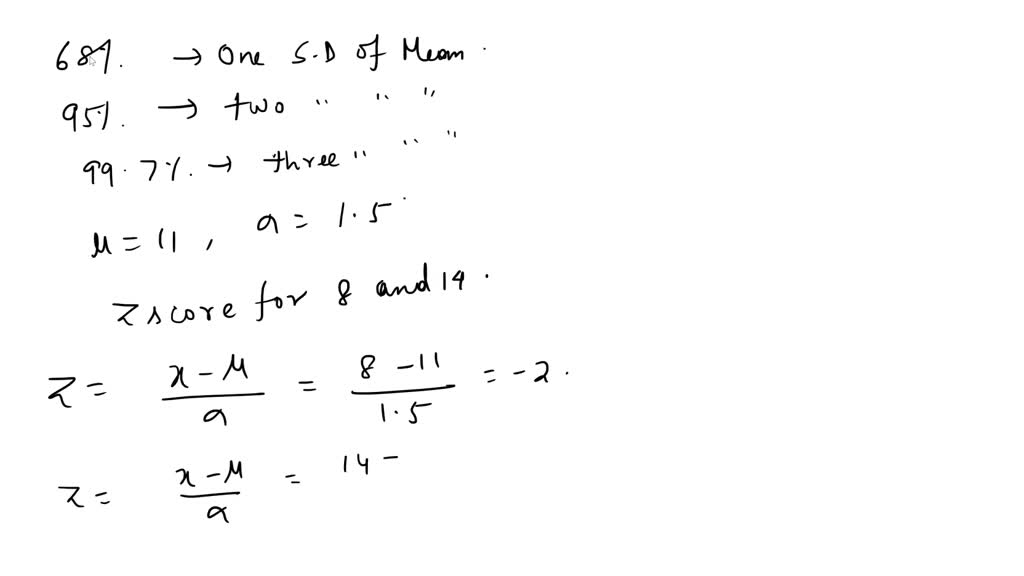 68% → One S.D of Mean.
95% → two " " "
99.7% → three " " "
μ = 11, a = 1.5
z score for 8 and 14.
z = x - μ / a = 8 - 11 / 1.5 = -2.
z = x - μ / a = 14 -